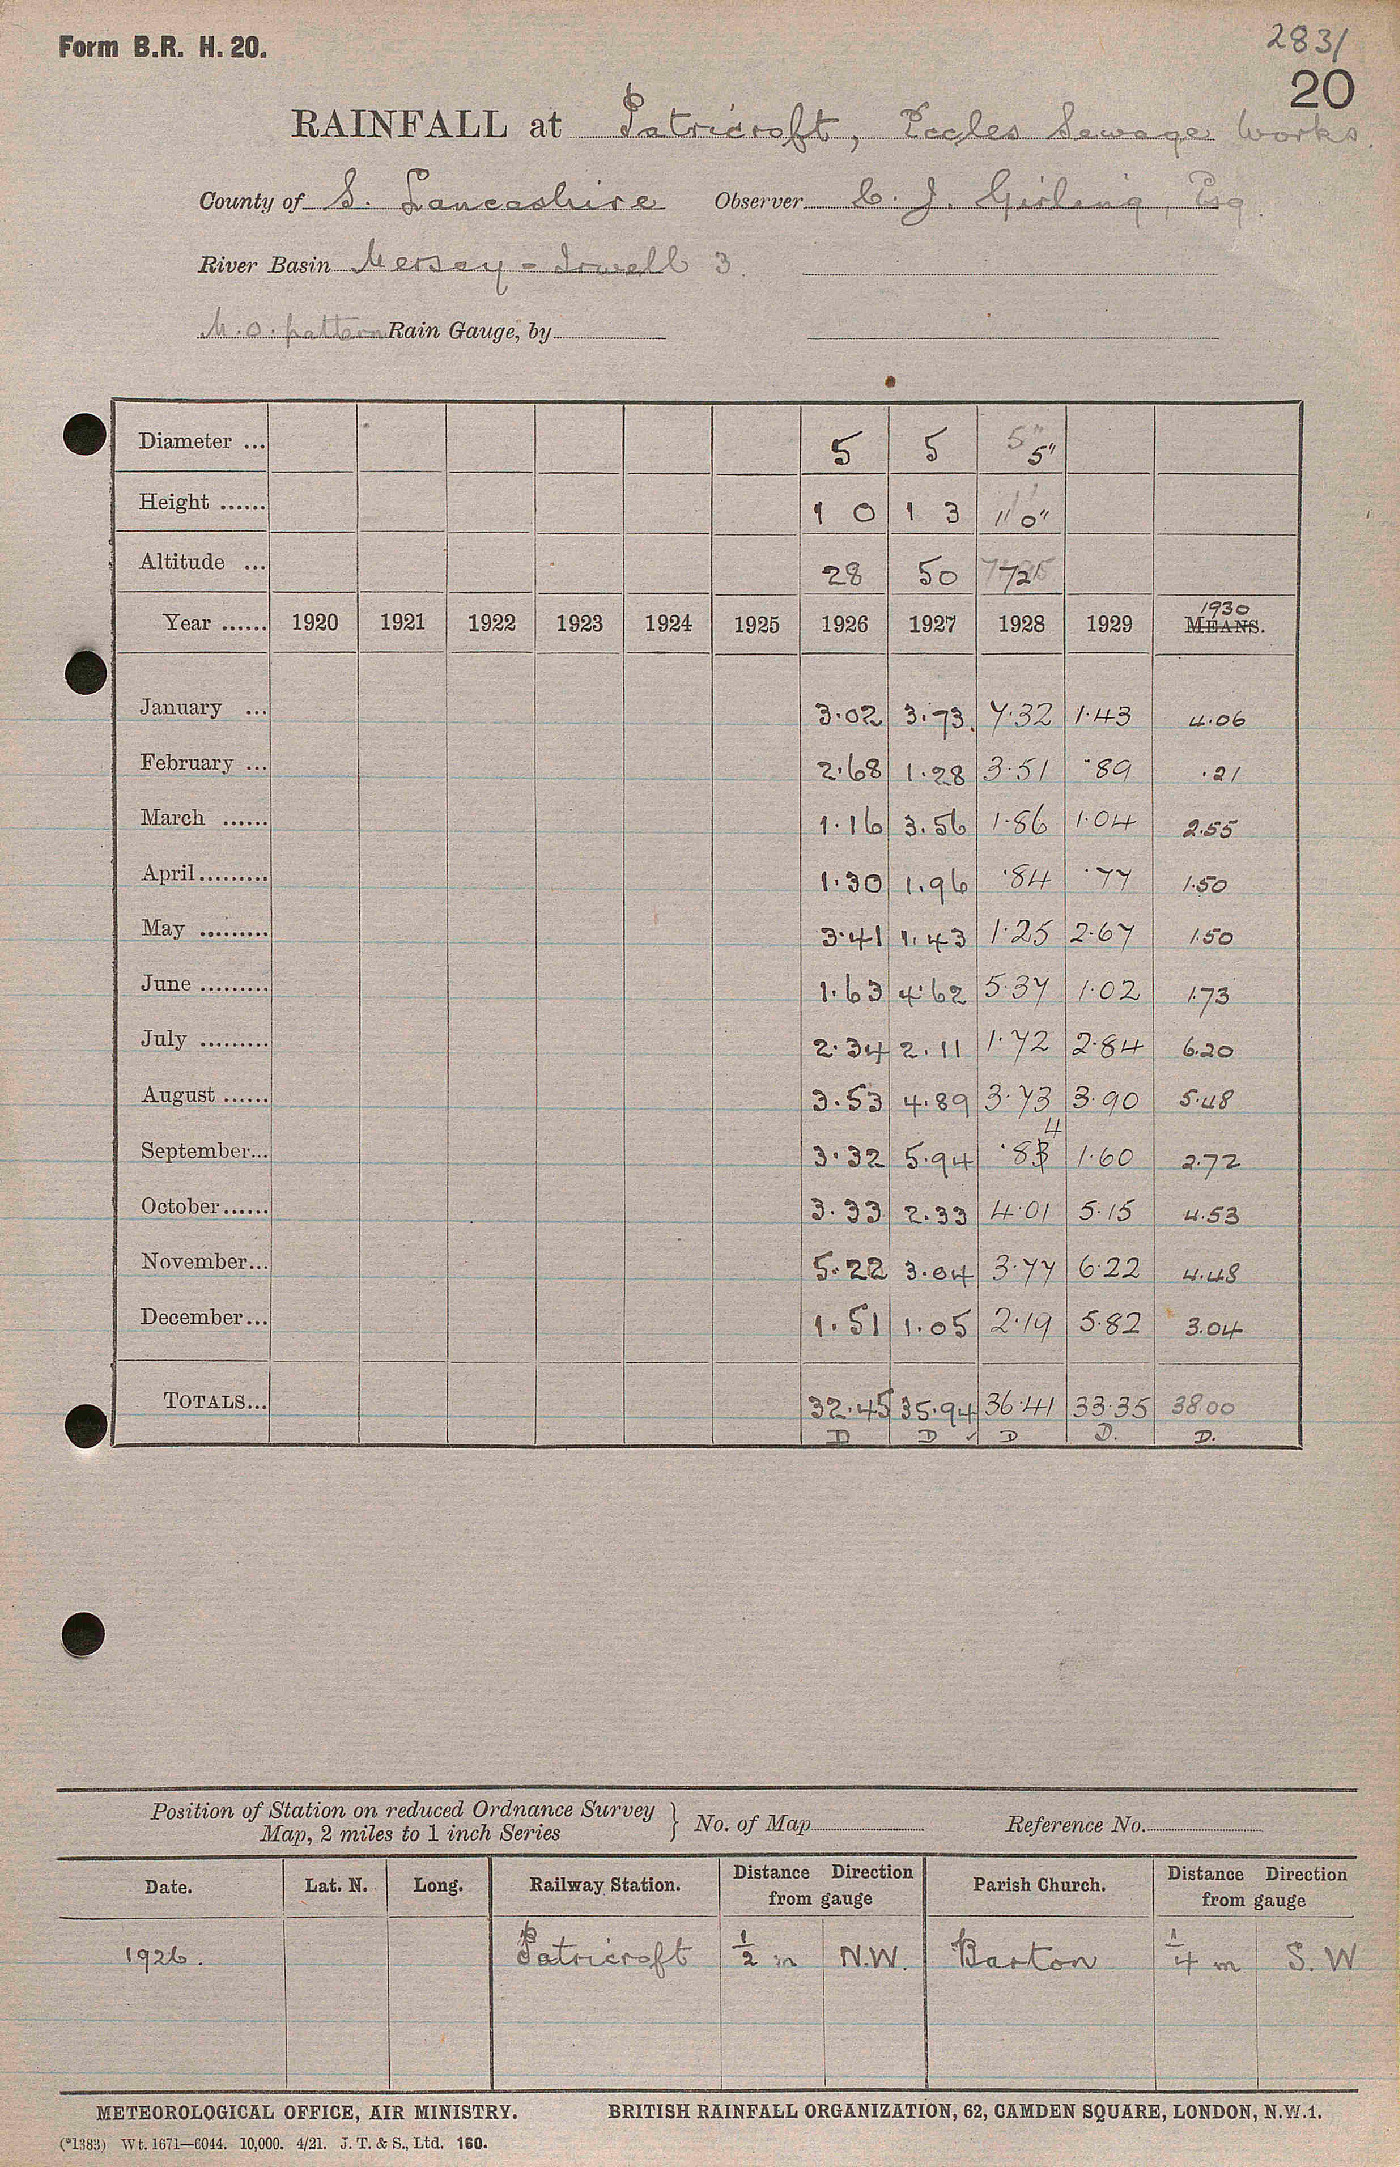 Form B.R. H. 20.
2831
20
RAINFALL at Patricroft, Eccles Sewage Works.
County of S. Lancashire Observer C. J. Girling, Esq.
River Basin Mersey - Irwell 3.
M.O. pattern Rain Gauge, by
Diameter ... 5 5 5" 5"
Height ...... 1 0 1 3 1' 0"
Altitude ... 28 50 72
Year ...... 1920 1921 1922 1923 1924 1925 1926 1927 1928 1929 1930 MEANS.
January ... 3.02 3.73 7.32 1.43 4.06
February ... 2.68 1.28 3.51 .89 .21
March ...... 1.16 3.56 1.86 1.04 2.55
April......... 1.30 1.96 .84 .77 1.50
May ......... 3.41 1.43 1.25 2.67 1.50
June ......... 1.63 4.62 5.37 1.02 1.73
July ......... 2.34 2.11 1.72 2.84 6.20
August ...... 3.53 4.89 3.73 3.90 5.48
September... 3.32 5.94 .83 4 1.60 2.72
October...... 3.33 2.33 4.01 5.15 4.53
November... 5.22 3.04 3.77 6.22 4.48
December... 1.51 1.05 2.19 5.82 3.04
TOTALS... 32.45 35.94 36.41 33.35 38.00
D D ✓ D D. D.
Position of Station on reduced Ordnance Survey
Map, 2 miles to 1 inch Series } No. of Map Reference No.
Date. Lat. N. Long. Railway Station. Distance Direction from gauge Parish Church. Distance Direction from gauge
1926. Patricroft 1/2 m N.W. Barton 1/4 m S.W
METEOROLOGICAL OFFICE, AIR MINISTRY. BRITISH RAINFALL ORGANIZATION, 62, CAMDEN SQUARE, LONDON, N.W.1.
(*1383) Wt. 1671—6044. 10,000. 4/21. J. T. & S., Ltd. 160.